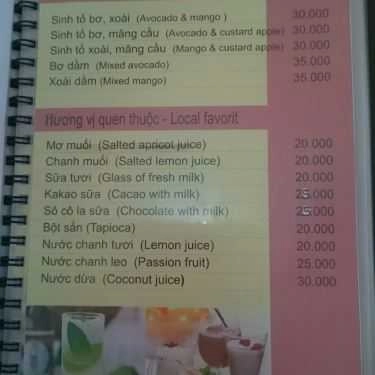 Sinh tố bơ, xoài (Avocado & mango ) 30.000
Sinh tố bơ, mãng cầu (Avocado & custard apple) 30.000
Sinh tố xoài, mãng cầu (Mango & custard apple) 30.000
Bơ dầm (Mixed avocado) 35.000
Xoài dầm (Mixed mango) 35.000
Hương vị quen thuộc - Local favorit
Mơ muối (Salted apricot juice) 20.000
Chanh muối (Salted lemon juice) 20.000
Sữa tươi (Glass of fresh milk) 20.000
Kakao sữa (Cacao with milk) 25.000
Sô cô la sữa (Chocolate with milk) 25.000
Bột sắn (Tapioca) 20.000
Nước chanh tươi (Lemon juice) 20.000
Nước chanh leo (Passion fruit) 25.000
Nước dừa (Coconut juice) 30.000